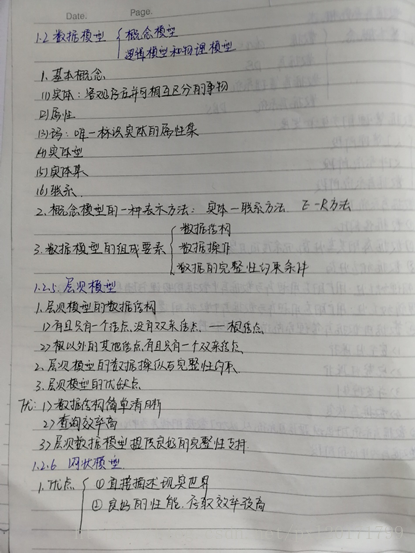 Date. Page.
1.2 数据模型 { 概念模型
逻辑模型和物理模型
1. 基本概念
(1) 实体：客观存在并可相互区分的事物
(2) 属性
(3) 码：唯一标识实体的属性集
(4) 实体型
(5) 实体集
(6) 联系
2. 概念模型的一种表示方法：实体—联系方法 E-R方法
数据结构
3. 数据模型的组成要素 { 数据操作
数据的完整性约束条件
1.2.5. 层次模型
1. 层次模型的数据结构
1) 有且只有一个结点,没有双亲结点 — 根结点
2) 根以外的其他结点有且只有一个双亲结点
2. 层次模型的数据操纵与完整性约束
3. 层次模型的优缺点
优: 1) 数据结构简单清晰
2) 查询效率高
3) 层次数据模型提供良好的完整性支持
1.2.6 网状模型
1. 优点 { ① 直接描述现实世界
② 良好的性能,存取效率较高